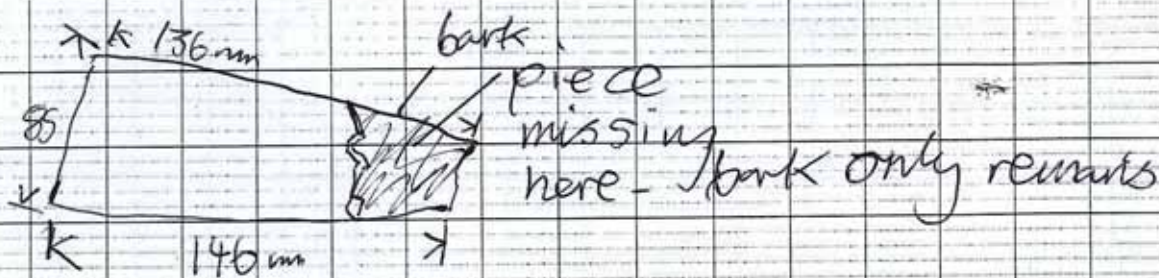 136mm
bark.
85
piece
missing
here - bark only remains
146mm